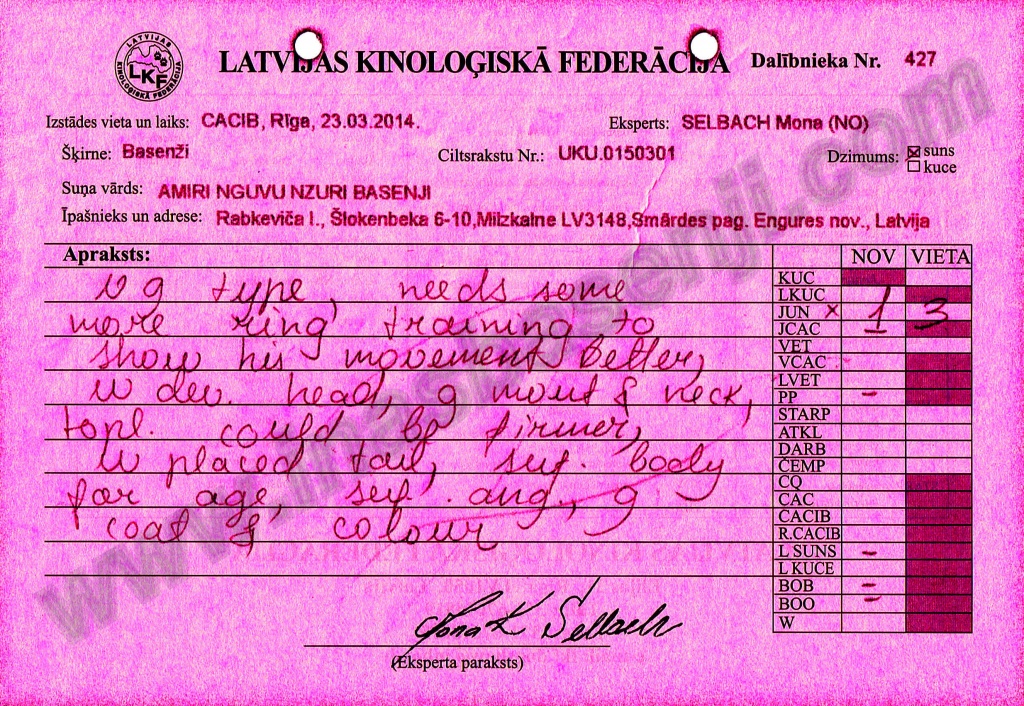 LATVIJAS KINOLOĢISKĀ FEDERĀCIJA
LKF
LATVIJAS KINOLOĢISKĀ FEDERĀCIJA Dalībnieka Nr. 427
Izstādes vieta un laiks: CACIB, Rīga, 23.03.2014. Eksperts: SELBACH Mona (NO)
Šķirne: Basenži Ciltsrakstu Nr.: UKU.0150301 Dzimums: ☒ suns
☐ kuce
Suņa vārds: AMIRI NGUVU NZURI BASENJI
Īpašnieks un adrese: Rabkeviča I., Šlokenbeka 6-10,Milzkalne LV3148,Smārdes pag. Engures nov., Latvija
Apraksts:
v g type, needs some
more ring training to
show his movement better,
w dev. head, g mout & neck,
topl. could be firmer,
w placed tail, suf. body
for age, suf. ang., g
coat & colour
NOV VIETA
KUC
LKUC
JUN x 1 3
JCAC –
VET
VCAC
LVET
PP –
STARP
ATKL
DARB
ČEMP
CQ
CAC
CACIB
R.CACIB
L SUNS –
L KUCE
BOB –
BOO –
W
Mona K Selbach
(Eksperta paraksts)